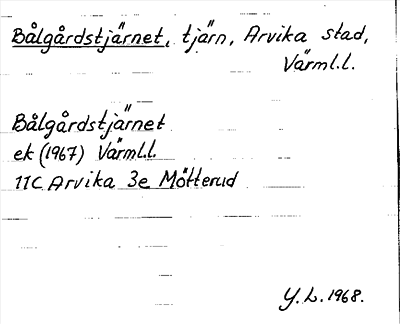 Bålgårdstjärnet, tjärn, Arvika stad,
Värml.l.
Bålgårdstjärnet
ek (1967) Värml.l.
11C Arvika 3e Mötterud
Y.L. 1968.